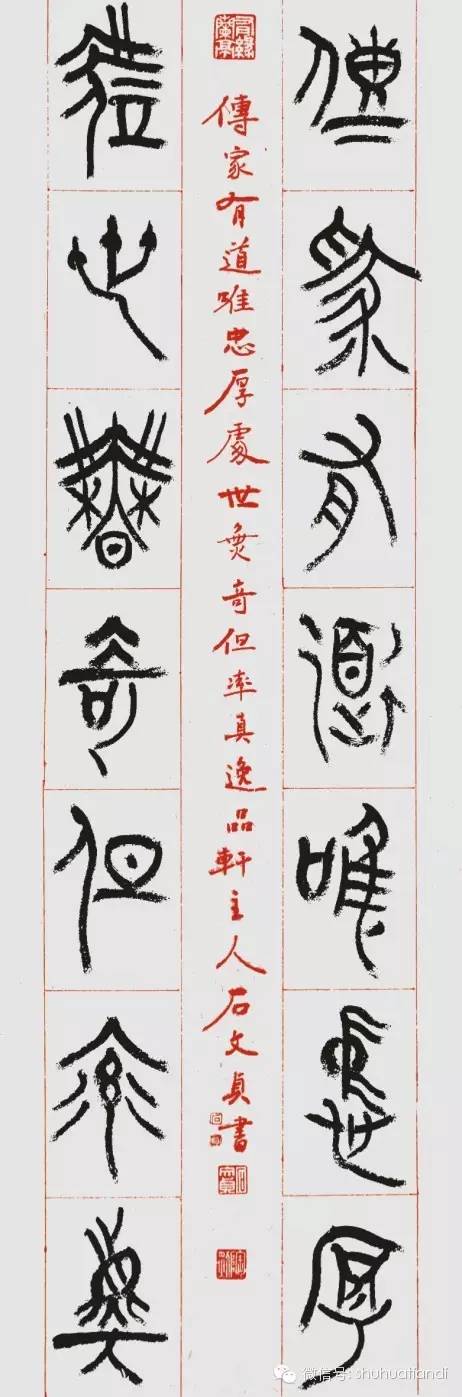 傳家有道唯忠厚
傳家有道唯忠厚處世無奇但率真逸品軒主人石文貞書
處世無奇但率真
微信号: shuhuatiandi